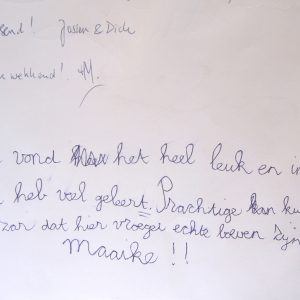 send! Josien & Dick
weekend! M.
vond het heel leuk en in
heb veel geleert. Prachtige
dat hier vroeger echte boeven zijn
Maaike !!